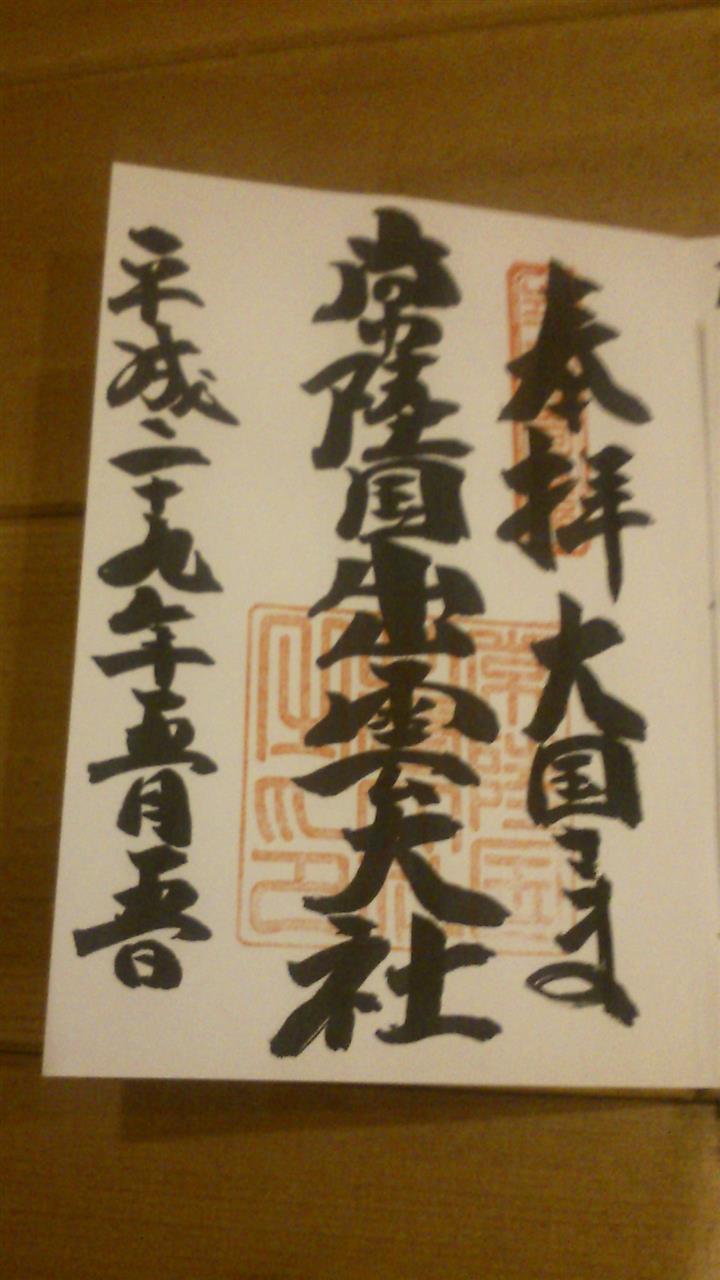 奉拝 大国さま
常陸国出雲大社
平成二十九年五月五日